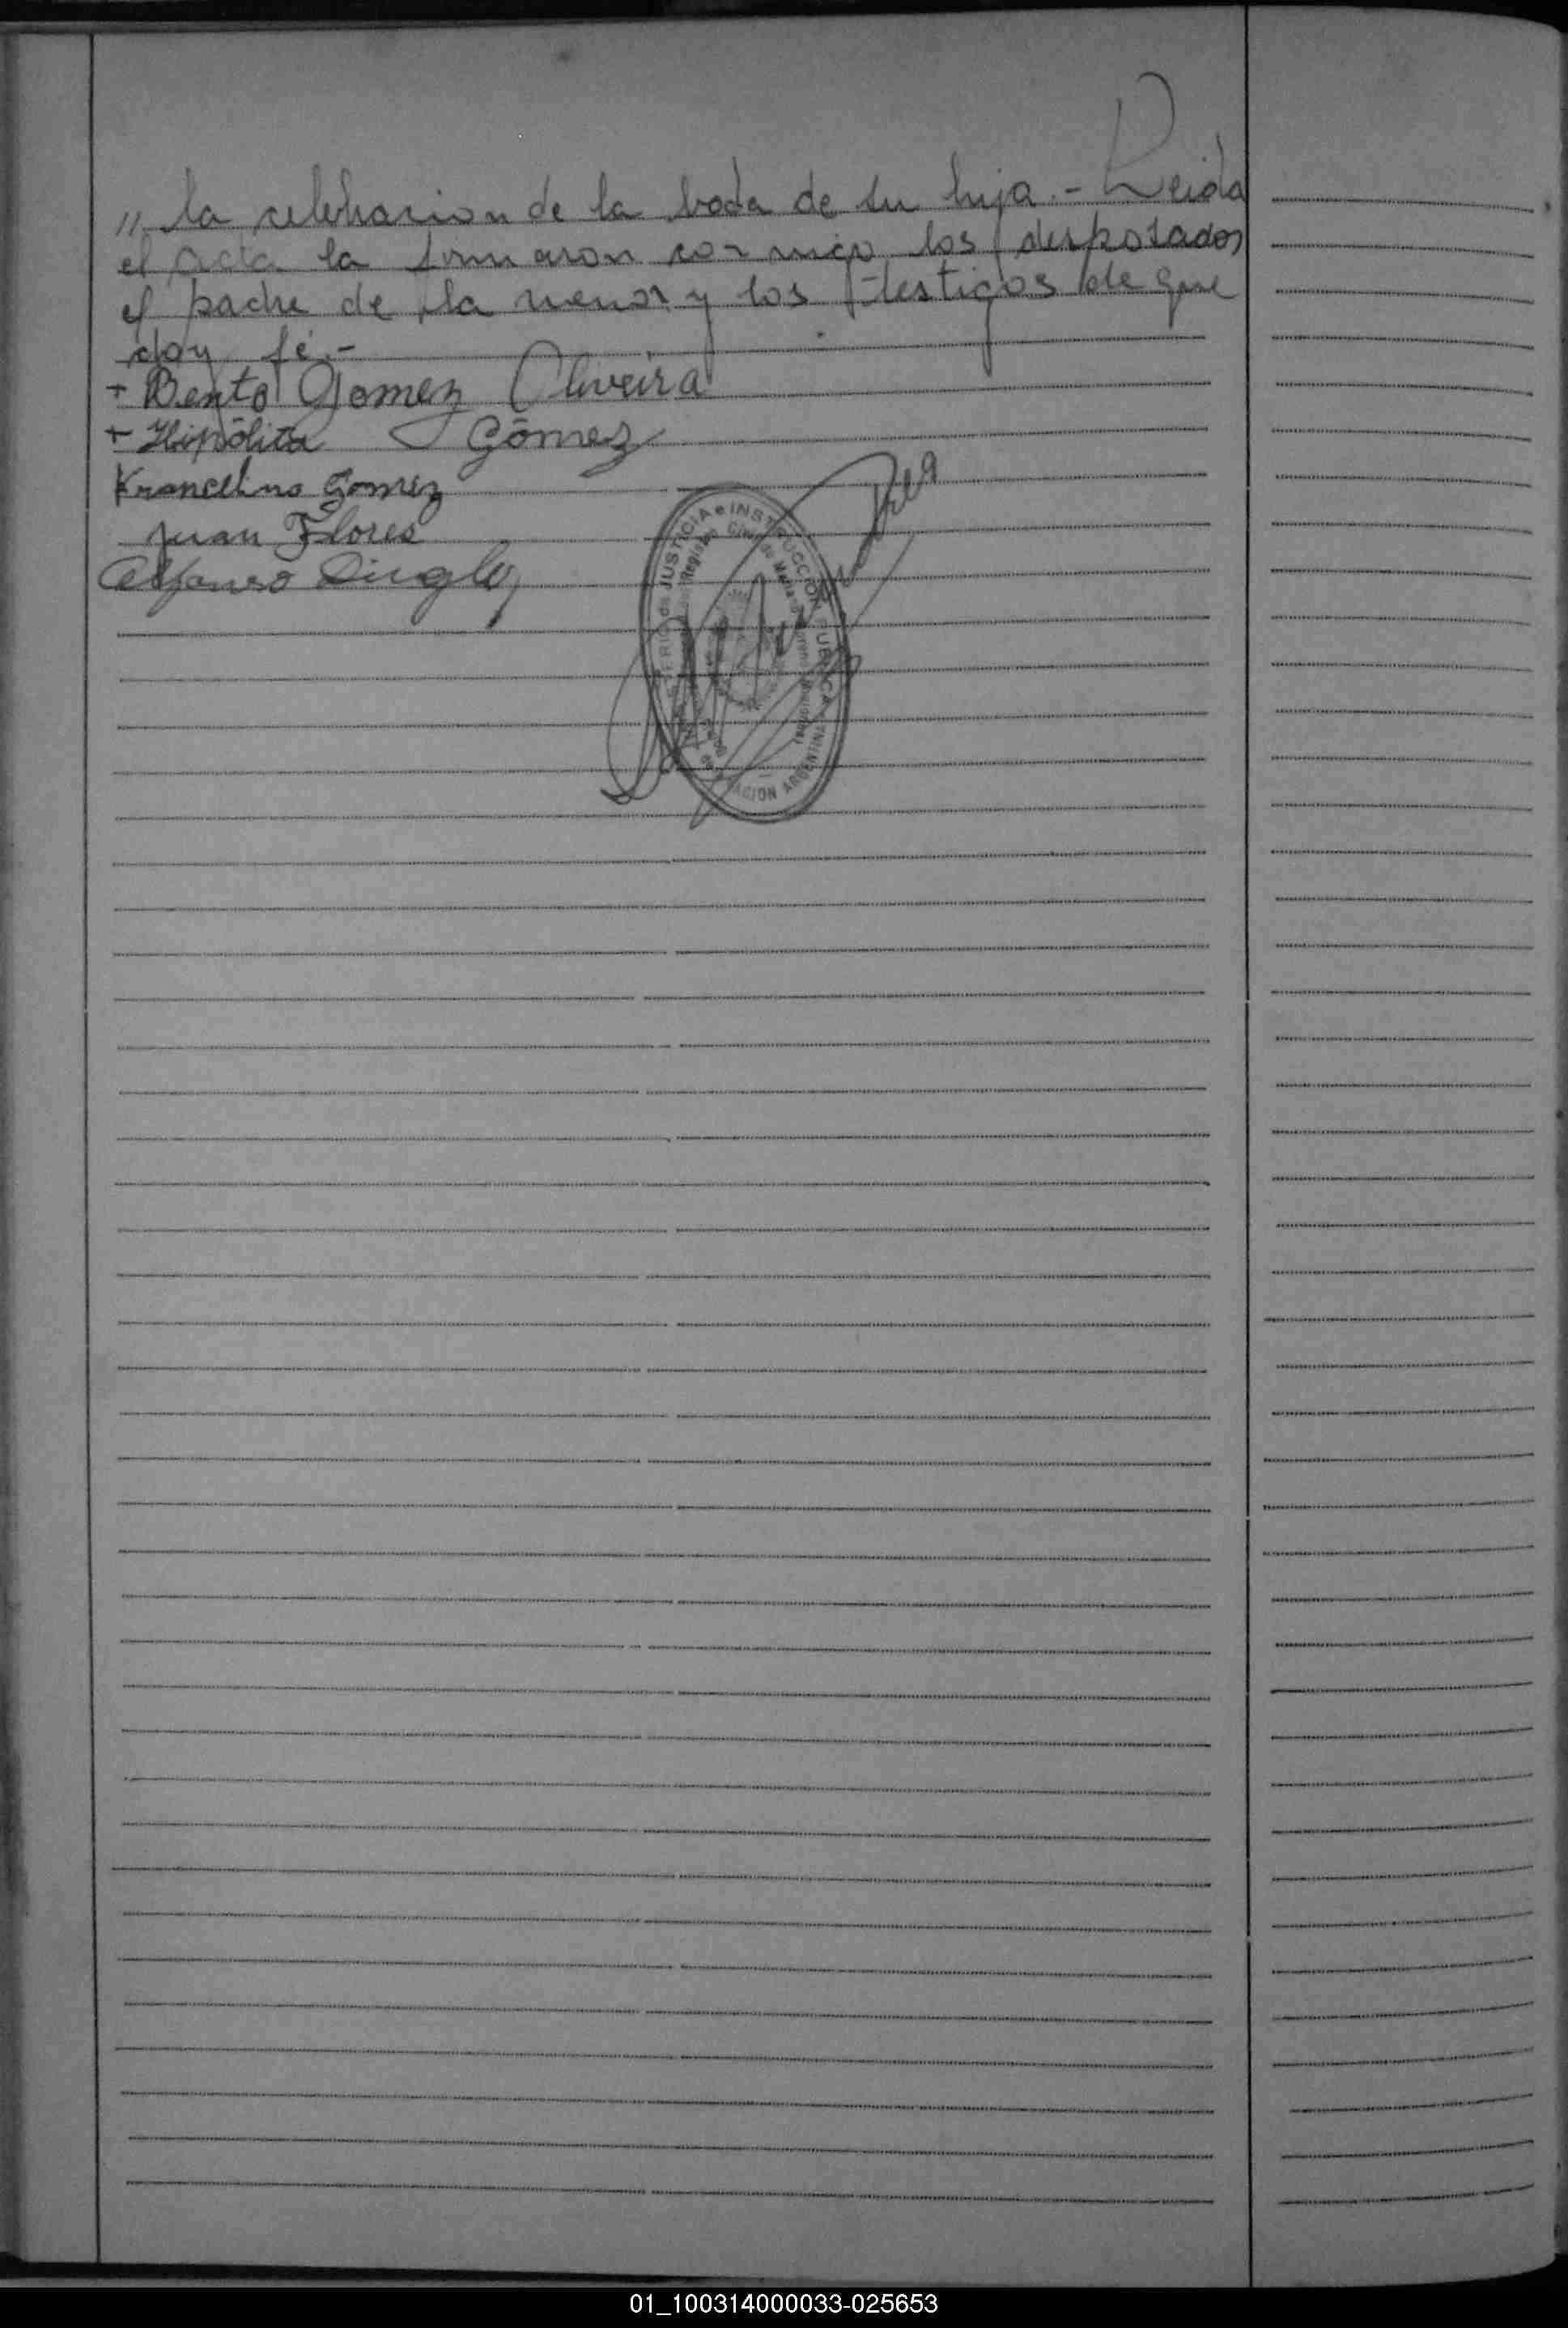 // la celebracion de la boda de su hija.- Leida
el acta la firmaron conmigo los desposados
el padre de la menor y los testigos de que
doy fé.-
+ Bento Gomez Oliveira
+ Hipólita Gómez
Francelino Gomez
Juan Flores
Alfonso
JUSTICIA e INSTRUCCION PUBLICA
Registro Civil de
NACION ARGENTINA
01_100314000033-025653